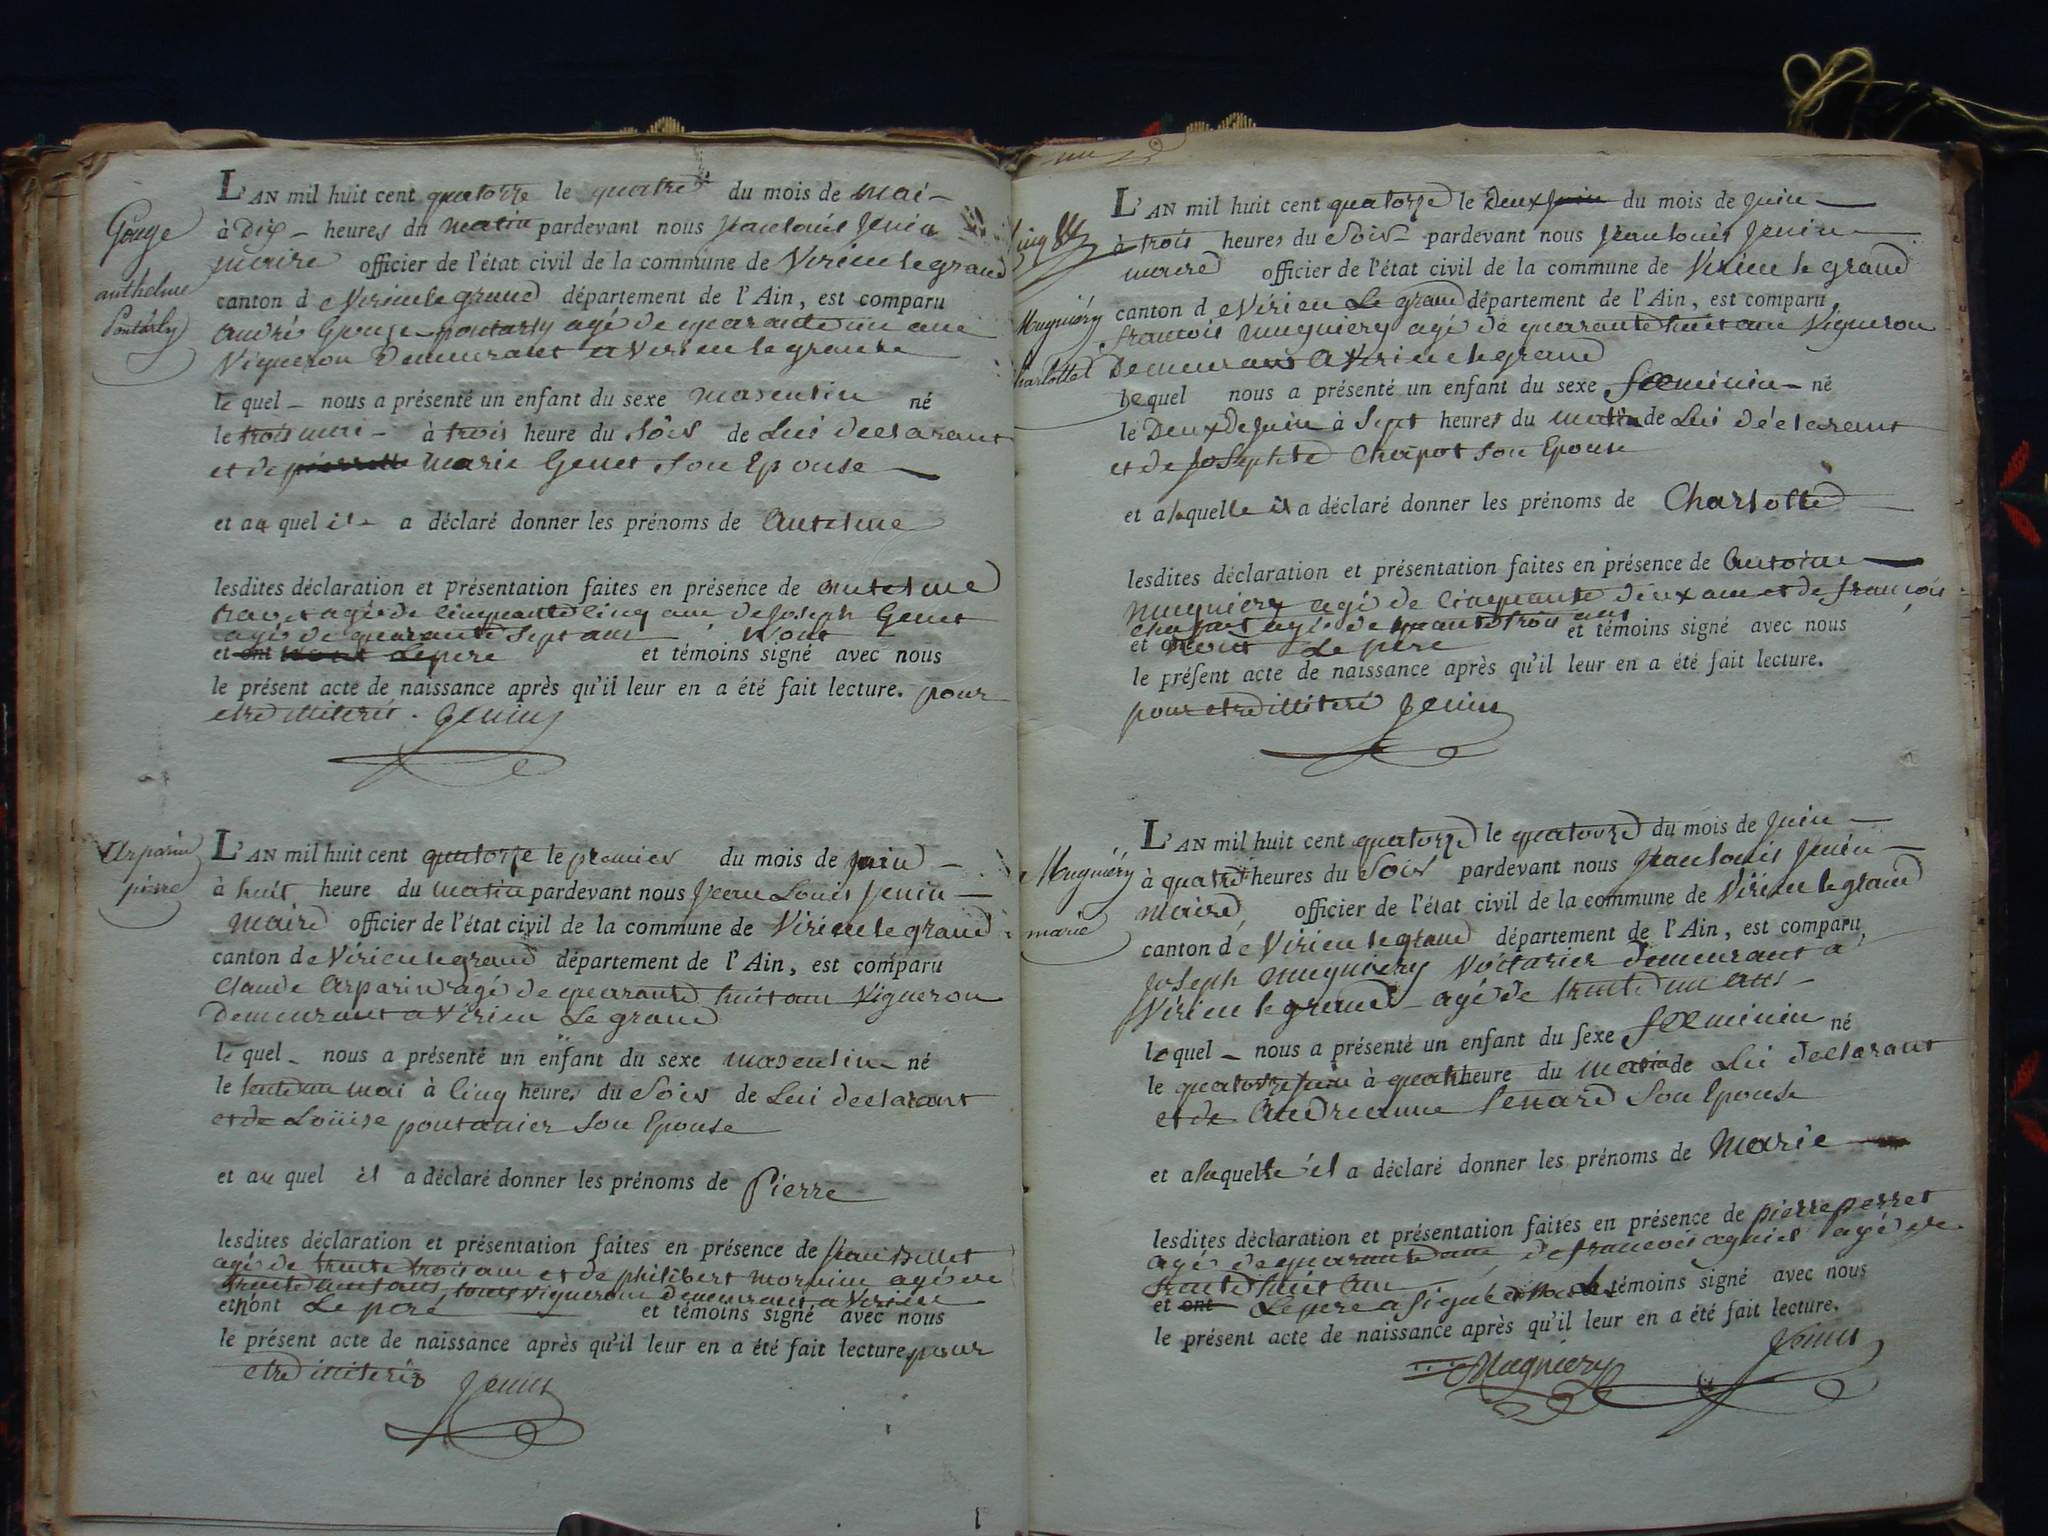 Gouge
anthelme
Pontarly
L'AN mil huit cent quatorze le quatre du mois de mai
à dix heures du matin pardevant nous Jean louis Jenin
maire officier de l'état civil de la commune de Virieu le grand
canton de Virieu le grand département de l'Ain, est comparu
andré Gouge pontarly agé de quarante un ans
Vigneron Demeurant a Virieu le grand
le quel nous a présenté un enfant du sexe masculin né
le trois mai à trois heure du soir de Lui declarant
et de marie Genet Son Epouse
et au quel il a déclaré donner les prénoms de Antelme
lesdites déclaration et présentation faites en présence de antelme
agé de cinquante cinq ans de Joseph Genet
agé de quarante Sept ans n'ont
et ont Le pere et témoins signé avec nous
le présent acte de naissance après qu'il leur en a été fait lecture. pour
etre illiteré. Jenin
Arparin
pierre
L'AN mil huit cent quatorze le premier du mois de juin
à huit heure du matin pardevant nous Jean Louis Jenin
Maire officier de l'état civil de la commune de Virieu le grand
canton de Virieu le grand département de l'Ain, est comparu
Claude Arparin agé de quarante huit ans Vigneron
Demeurant a Virieu Le grand
le quel nous a présenté un enfant du sexe masculin né
le trente un mai à cinq heures du Soir de Lui declarant
et de Loüise pontanier Son Epouse
et au quel il a déclaré donner les prénoms de Pierre
lesdites déclaration et présentation faites en présence de Jean Billet
agé de trente trois ans et de philibert mornieu agé de
ans, tous Vigneron demeurant a Virieu
et n'ont Le pere et témoins signé avec nous
le présent acte de naissance après qu'il leur en a été fait lecture pour
etre illiteré Jenin
Mugniéry
Charlotte
L'AN mil huit cent quatorze le Deux juin du mois de Juin
à trois heures du Soir pardevant nous Jean louis Jenin
maire officier de l'état civil de la commune de Virieu le grand
canton de Virieu Le grand département de l'Ain, est comparu
francois mugniery agé de quarante huit ans Vigneron
Demeurant a Virieu le grand
le quel nous a présenté un enfant du sexe fœminin né
le Deux De juin à Sept heures du matin de Lui déclarant
et de Josephte Chapot Son Epouse
et a laquelle il a déclaré donner les prénoms de Charlotte
lesdites déclaration et présentation faites en présence de Antoine
mugniery agé de Cinquante deux ans et de francois
agé de trois ans
et ont n'ont Le pere et témoins signé avec nous
le présent acte de naissance après qu'il leur en a été fait lecture.
pour etre illiteré Jenin
Mugniéry
marie
L'AN mil huit cent quatorze le quatorze du mois de Juin
à quatre heures du Soir pardevant nous Jean louis Jenin
Maire officier de l'état civil de la commune de Virieu le grand
canton de Virieu le grand département de l'Ain, est comparu
Joseph mugniery Voiturier demeurant a
Virieu le grand agé de trente un ans
le quel nous a présenté un enfant du sexe fœminin né
le quatorze juin à quatre heure du matin de Lui declarant
et de Andreanne Son Epouse
et a laquelle il a déclaré donner les prénoms de Marie
lesdites déclaration et présentation faites en présence de pierre perret
agé de quarante ans de francois agniel agé de
trente huit ans
et ont Le pere a Signé témoins signé avec nous
le présent acte de naissance après qu'il leur en a été fait lecture.
Mugniery Jenin